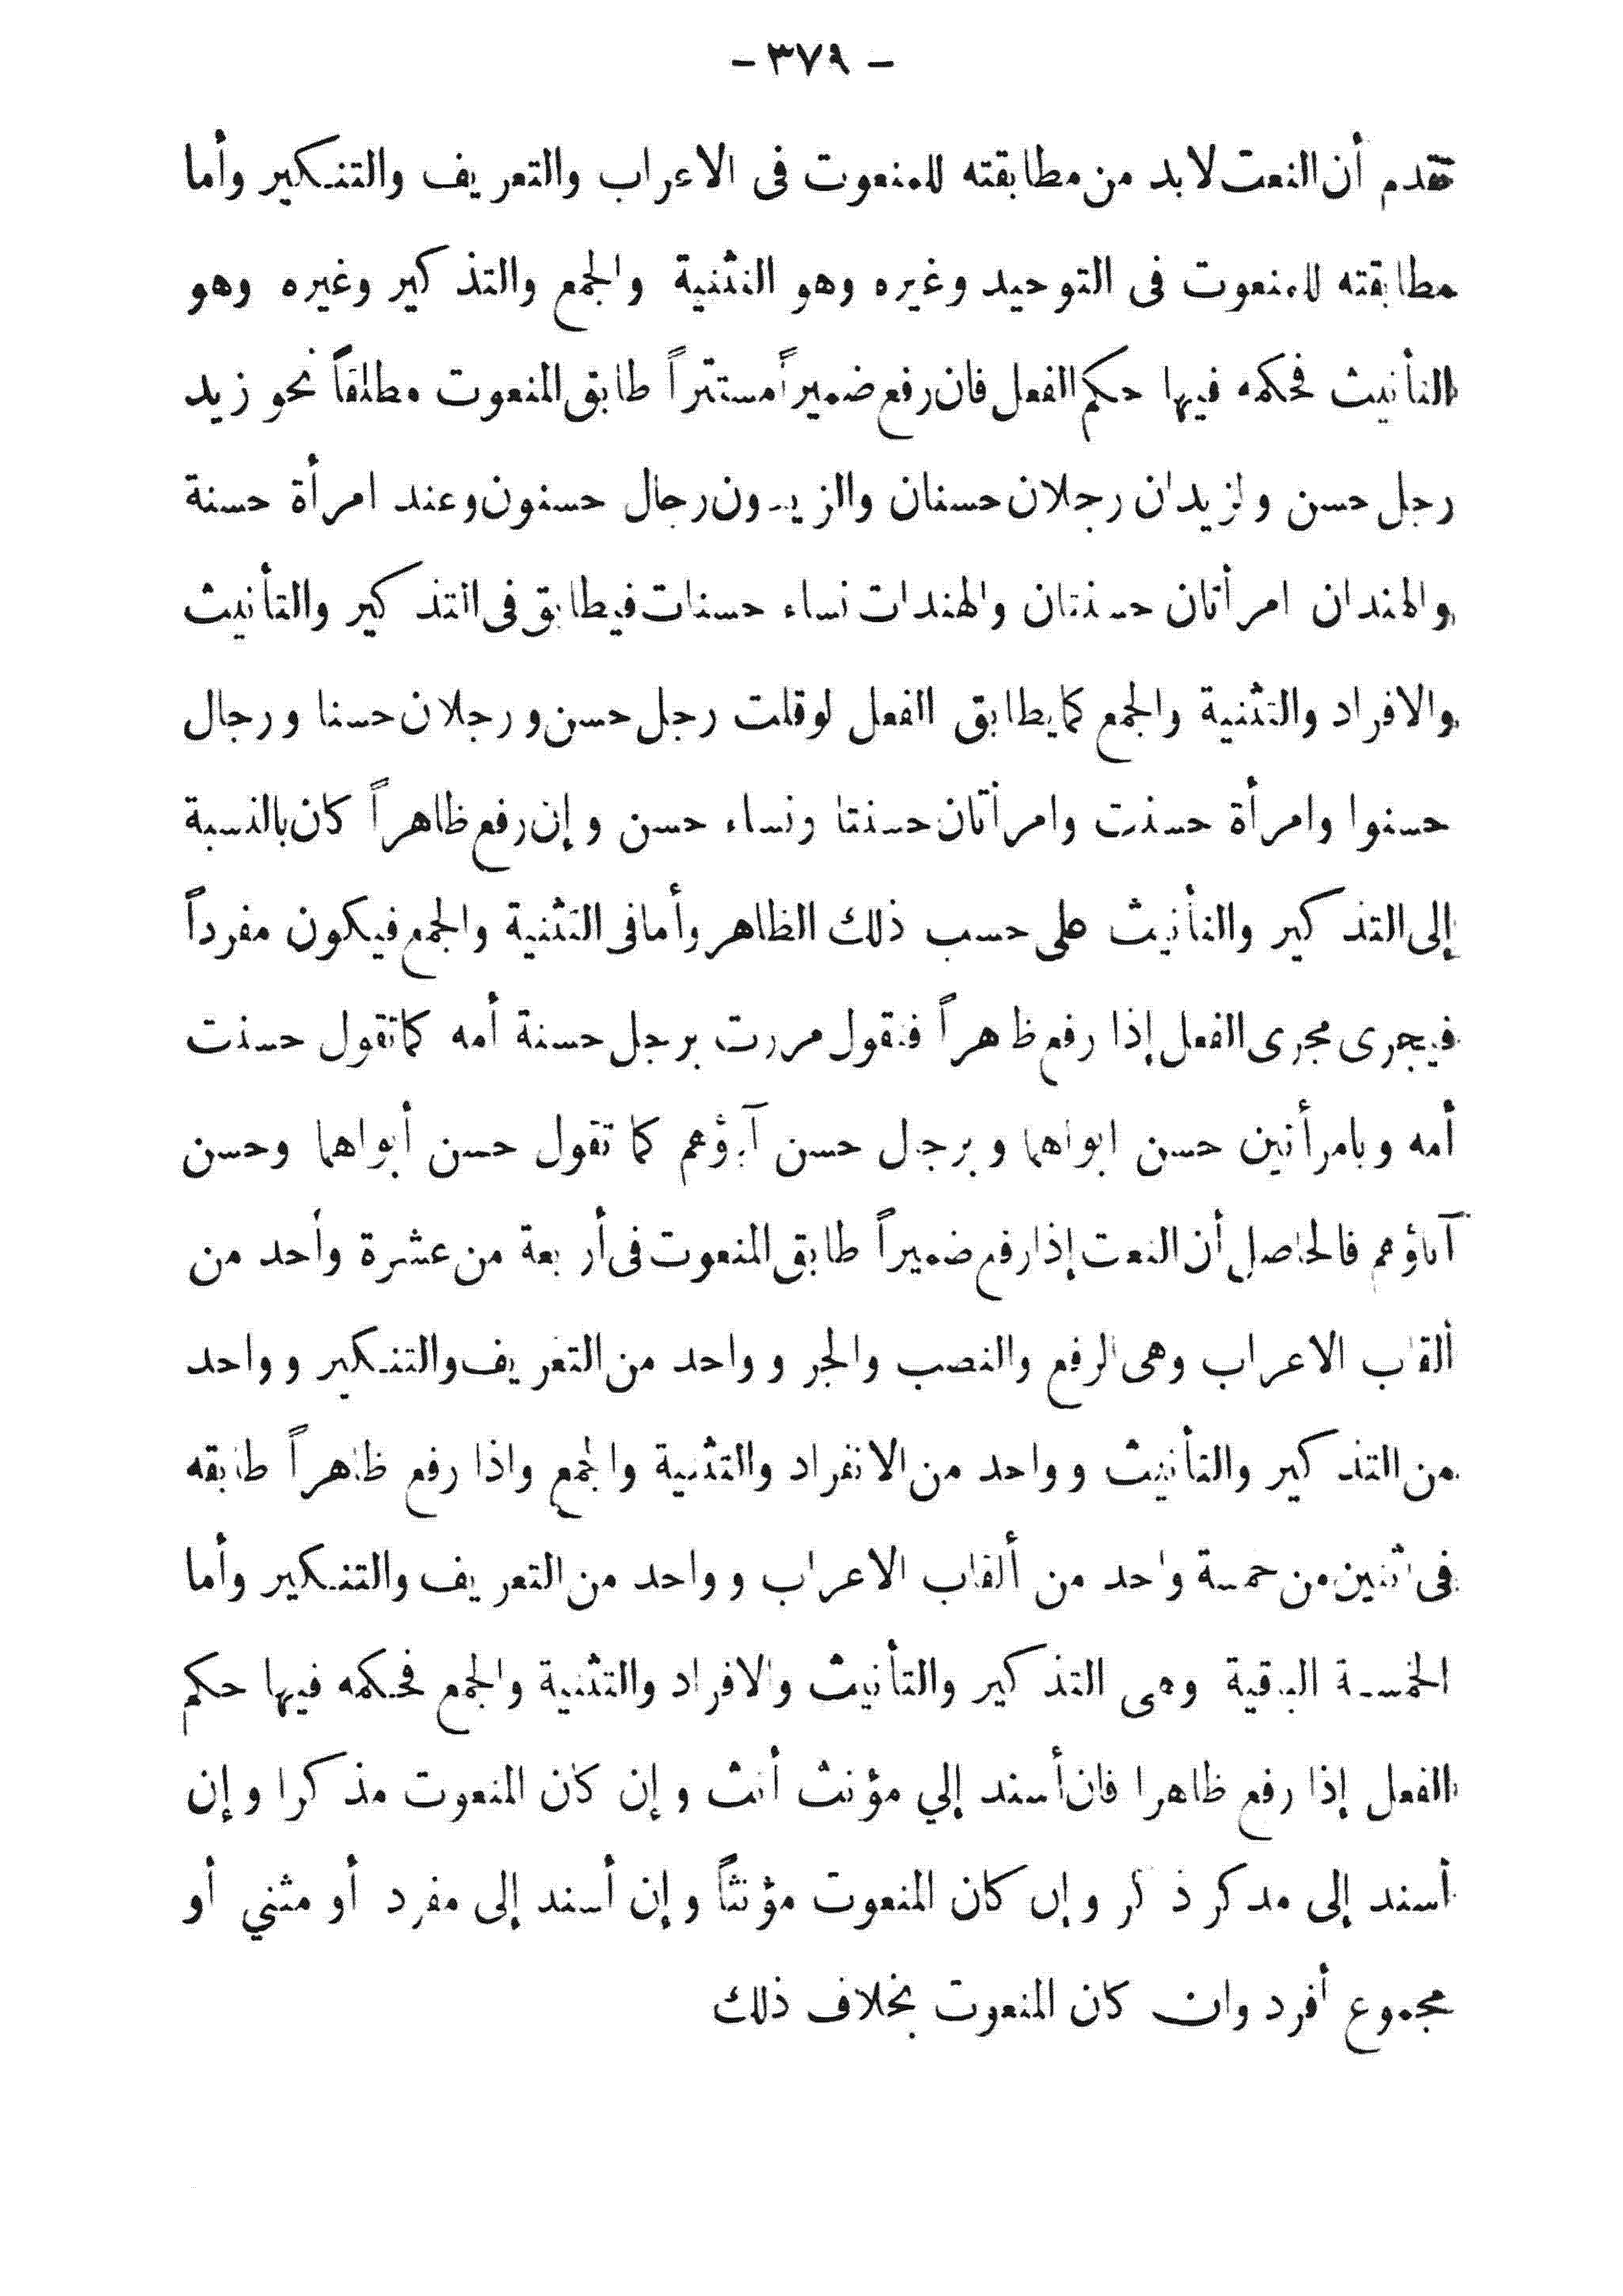 - ٣٧٩ -
تقدم أن النعت لابد من مطابقته للمنعوت فى الاعراب والتعريف والتنكير وأما
مطابقته للمنعوت فى التوحيد وغيره وهو التثنية والجمع والتذكير وغيره وهو
التأنيث فحكمه فيها حكم الفعل فان رفع ضميراً مستتراً طابق المنعوت مطلقاً نحو زيد
رجل حسن والزيدان رجلان حسنان والزيدون رجال حسنون وعند امرأة حسنة
والهندان امرأتان حسنتان والهندات نساء حسنات فيطابق فى التذكير والتأنيث
والافراد والتثنية والجمع كما يطابق الفعل لو قلت رجل حسن ورجلان حسنا ورجال
حسنوا وامرأة حسنت وامرأتان حسنتا ونساء حسن وإن رفع ظاهراً كان بالنسبة
إلى التذكير والتأنيث على حسب ذلك الظاهر وأما فى التثنية والجمع فيكون مفرداً
فيجرى مجرى الفعل إذا رفع ظاهراً فتقول مررت برجل حسنة أمه كما تقول حسنت
أمه وبامرأتين حسن ابواهما وبرجل حسن آباؤهم كما تقول حسن أبواهما وحسن
آباؤهم فالحاصل أن النعت إذا رفع ضميراً طابق المنعوت فى أربعة من عشرة واحد من
ألقاب الاعراب وهى الرفع والنصب والجر وواحد من التعريف والتنكير وواحد
من التذكير والتأنيث وواحد من الانفراد والتثنية والجمع واذا رفع ظاهراً طابقه
فى اثنين من خمسة واحد من ألقاب الاعراب وواحد من التعريف والتنكير وأما
الخمسة الباقية وهى التذكير والتأنيث والافراد والتثنية والجمع فحكمه فيها حكم
الفعل إذا رفع ظاهرا فان أسند إلي مؤنث أنث وإن كان المنعوت مذكرا وإن
أسند إلى مذكر ذكر وإن كان المنعوت مؤنثاً وإن أسند إلى مفرد أو مثني أو
مجموع أفرد وان كان المنعوت بخلاف ذلك